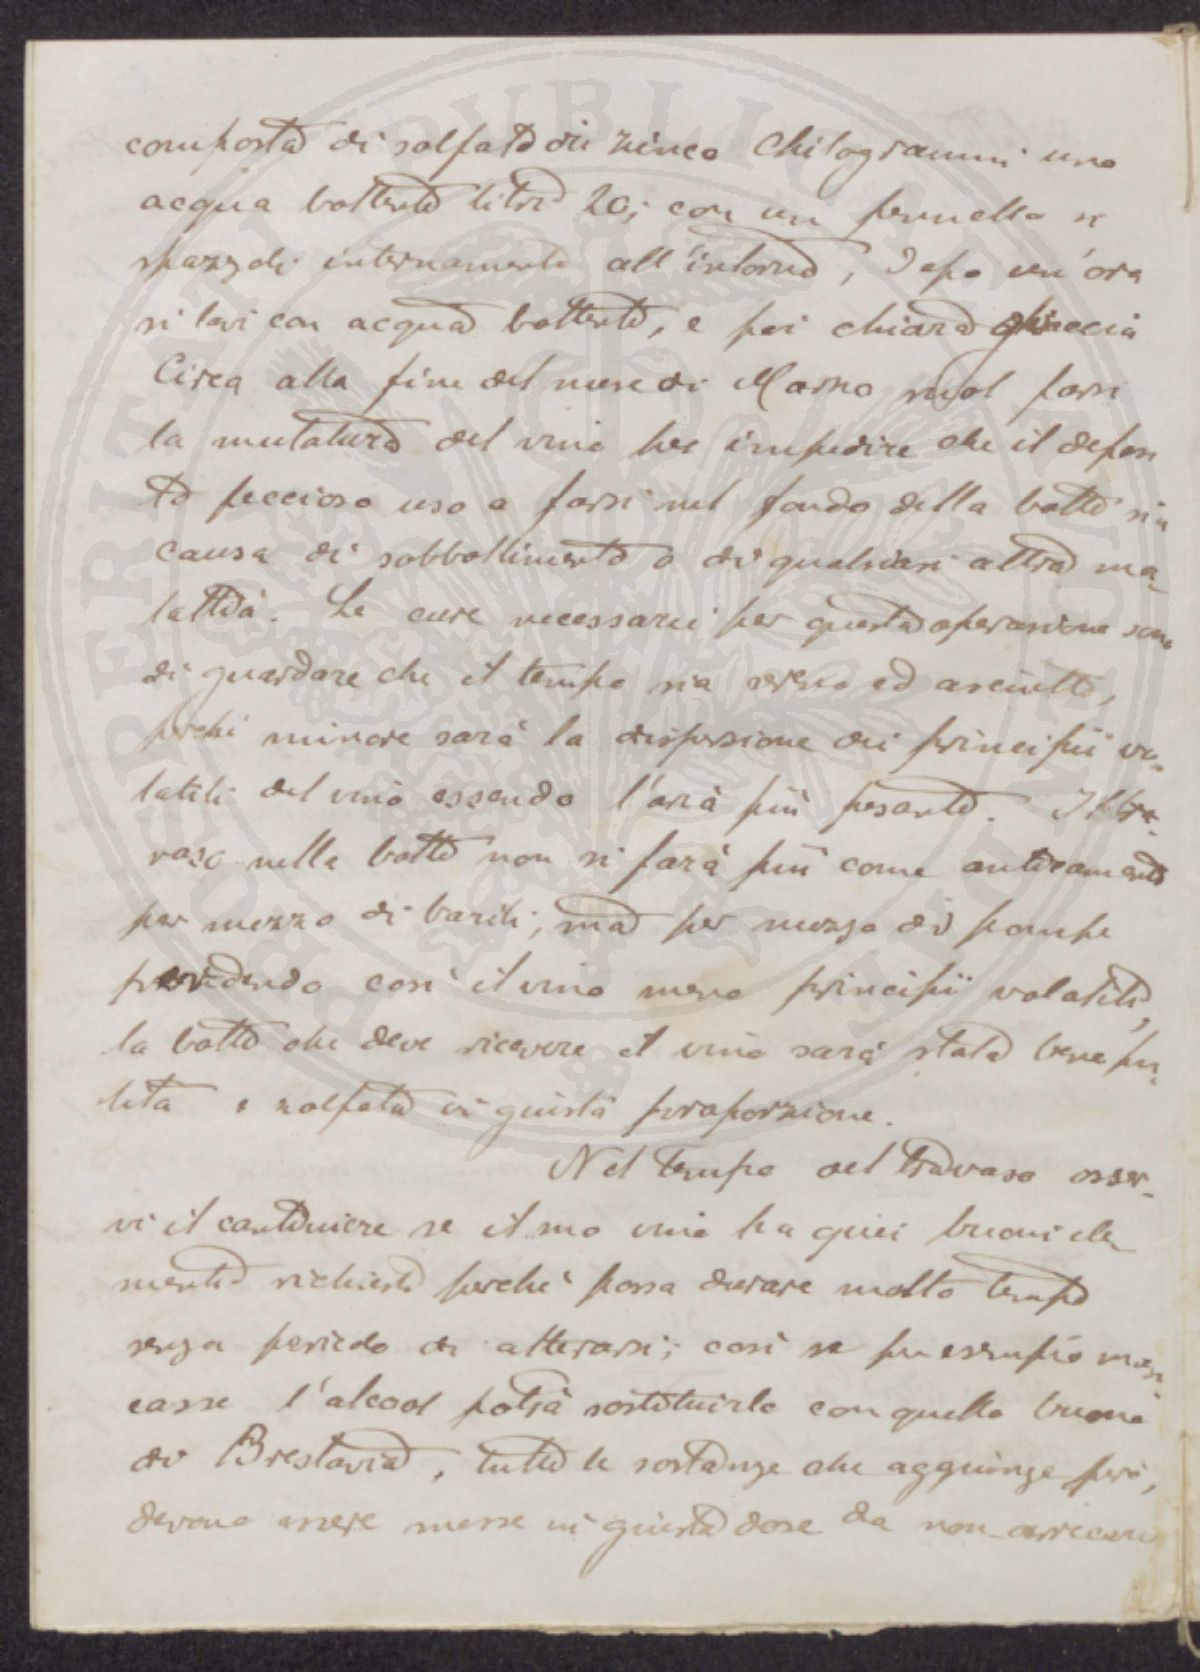 composta di solfato di zinco Chilogrammi uno
acqua bollente litri 20; con un pennello si
spazzoli internamente all'intorno, dopo un'ora
si lavi con acqua bollente, e poi chiara ghiaccia
Circa alla fine del mese di Marzo suol farsi
la mutatura del vino per impedire che il deposi
to feccioso uso a farsi nel fondo della botte sia
causa di sobbollimento o di qualsiasi altra ma-
lattia. Le cure necessarie per questa operazione sono
di guardare che il tempo sia sereno ed asciutto,
perchè minore sarà la dispersione dei principii vo-
latili del vino essendo l'aria più pesante. Il tra-
vaso nella botte non si farà più come anticamente
per mezzo di barili, ma per mezzo di pompe
perdendo così il vino meno principii volatili,
la botte che deve ricevere il vino sarà stata bene pu-
lita e solfata in giusta proporzione.
Nel tempo del travaso osser-
vi il cantiniere se il suo vino ha quei buoni ele-
menti richiesti perchè possa durare molto tempo
senza pericolo di alterarsi; così se per esempio man-
casse l'alcool potrà sostituirlo con quello buono
di Breslavia, tutte le sostanze che aggiunge però,
devono essere messe in giusta dose da non arrecare
PROSPERITATI PVBLICAE